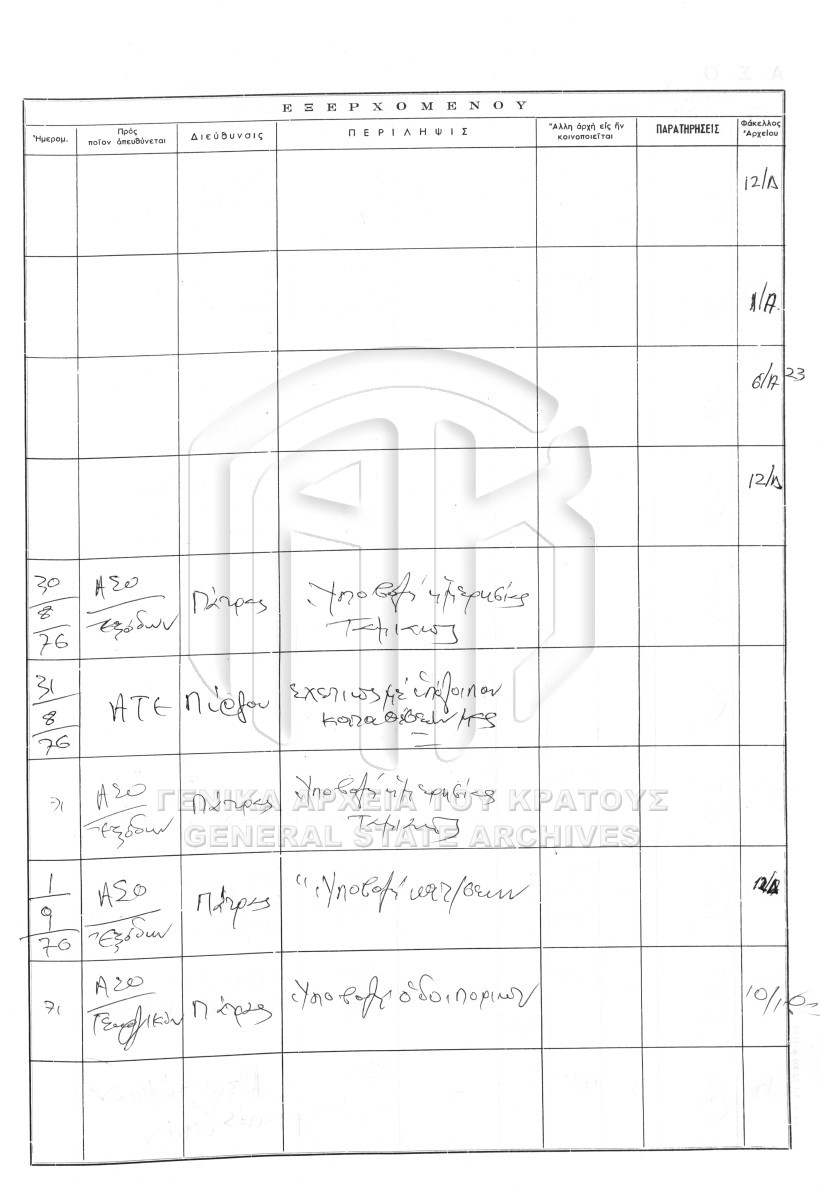 ΕΞΕΡΧΟΜΕΝΟΥ
Ἡμερομ.
Πρὸς
ποῖον ἀπευθύνεται
Διεύθυνσις
ΠΕΡΙΛΗΨΙΣ
Ἄλλη ἀρχὴ εἰς ἣν
κοινοποιεῖται
ΠΑΡΑΤΗΡΗΣΕΙΣ
Φάκελλος
Ἀρχείου
12/Δ
1/Α
6/Α 23
12/Δ
30
8
76
ΑΣΟ
Ἐξόδων
Πάτρας
Ὑποβολή ἡμερησίας
Ταμιακῶς
31
8
76
ΑΤΕ
Πύργου
Σχετικῶς μέ ὑπόλοιπον
καταθέσεων μας
ΑΣΟ
Ἐξόδων
Πάτρας
Ὑποβολή ἡμερησίας
Ταμιακῶς
ΓΕΝΙΚΑ ΑΡΧΕΙΑ ΤΟΥ ΚΡΑΤΟΥΣ
GENERAL STATE ARCHIVES
1
9
76
ΑΣΟ
Ἐξόδων
Πάτρας
Ὑποβολή κατ/σεων
12/Δ
ΑΣΟ
Πάτρας
Ὑποβολή ὁδοιπορικῶν